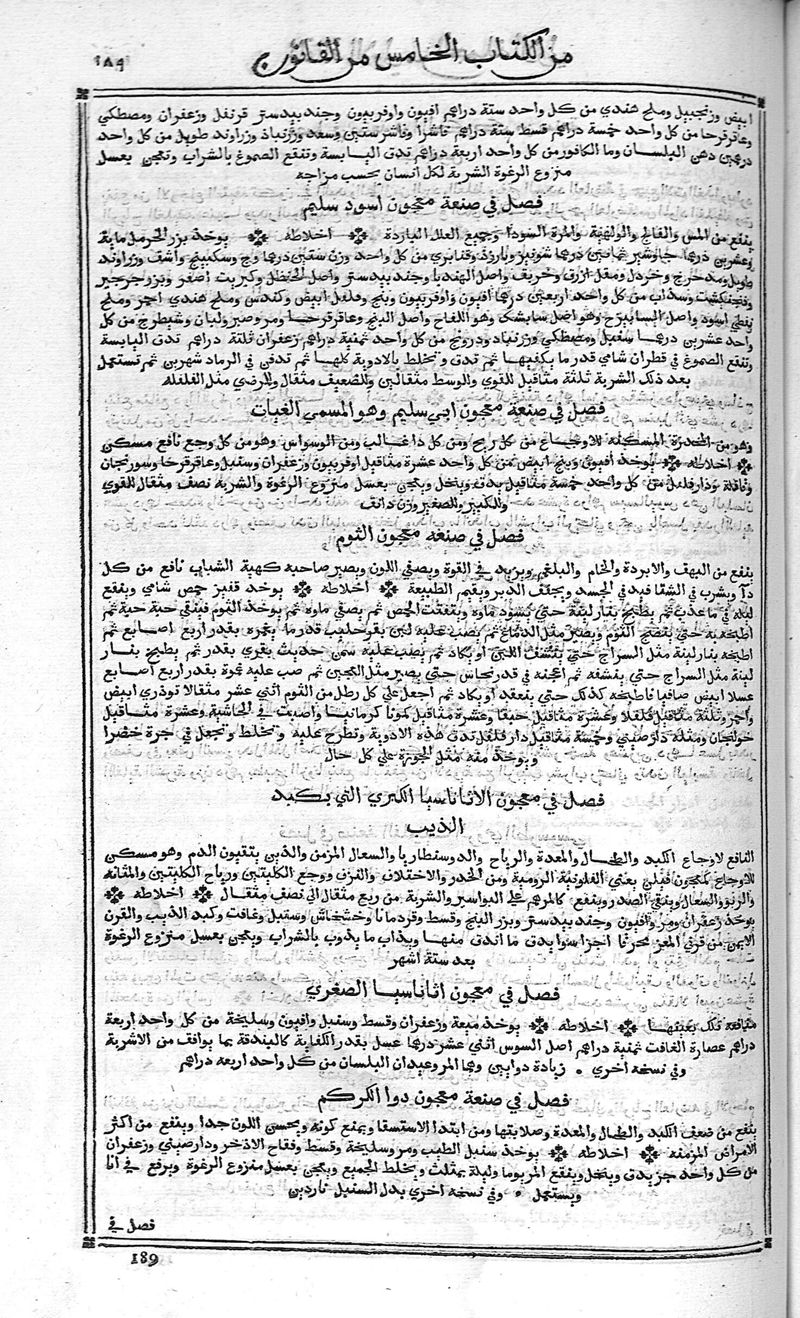 ١٨٩ من الكتاب الخامس من القانون
ابيض وزنجبيل وملح هندي من كل واحد ستة دراهم افيون واوفربيون وجندبيدستر قرنفل وزعفران ومصطكي
وعاقرقرحا من كل واحد خمسة دراهم قسط ستة دراهم فاشرا وفاشرستين وسعد وزرنباد وزراوند طويل من كل واحد
درهمين دهن البلسان وما الكافور من كل واحد اربعة دراهم تدق اليابسة وتنقع الصموغ بالشراب وتعجن بعسل
منزوع الرغوة الشربة لكل انسان بحسب مزاجه
فصل في صنعة معجون اسود سليم
ينفع من المس والفالج واللقوة والمرة السودا وجميع العلل الباردة اخلاطه يوخذ بزر الحرمل ماية
وعشرين درهما جاوشير ثمانين درهما شونيز وبارزد وقنابري من كل واحد وزن ستين درهما وج وسكبينج واشق وزراوند
طويل ومدحرج وخردل ومقل ازرق وخريف واصل الهندبا وجندبيدستر واصل الحنظل وكبريت اصفر وبزر جرجير
وفنجنكشت وسذاب من كل واحد اربعين درهما افيون واوفربيون وبنج وفلفل ابيض وكندس وملح هندي احمر وملح
نفطي اسود واصل اليبروح وهو اصل سابشك وهو اللفاح واصل البنج وعاقرقرحا ومر وصبر ولبان وشيطرج من كل
واحد عشرين درهما سنبل ومصطكي وزرنباد ودرونج من كل واحد ثمنية دراهم زعفران ثلثة دراهم تدق اليابسة
وتنقع الصموغ في قطران شامي قدر ما يكفيها ثم تدق وتخلط بالادوية كلها ثم تدفن في الرماد شهرين ثم تستعمل
بعد ذلك الشربة ثلثة مثاقيل للقوي وللوسط مثقالين وللضعيف مثقال وللمرضي مثل الفلفله
فصل في صنعة معجون ابي سليم وهو المسمي الغياث
وهو من المخدرة المسكنة للاوجاع من كل ريح ومن كل دا غالب ومن الوسواس وهو من كل وجع نافع مسكن
اخلاطه يوخذ افيون وبنج ابيض من كل واحد عشرة مثاقيل اوفربيون وزعفران وسنبل وعاقرقرحا وسورنجان
وقاقلة ودارفلفل من كل واحد خمسة مثاقيل يدق وينخل ويعجن بعسل منزوع الرغوة والشربة نصف مثقال للقوي
وللكبير وللصغير وزن دانق
فصل في صنعة معجون الثوم
ينفع من البهق والابردة والخام والبلغم ويزيد في القوة ويصفي اللون ويصير صاحبه كهية الشباب نافع من كل
دا ويشرب في الشتا فيدفي الجسد ويجفف الدبر ويقيم الطبيعة اخلاطه يوخذ قفيز حمص شامي وينقع
ليلة في ما عذب ثم يطبخ بنار لينة حتي يسود ماوه ويتفتت الحمص ثم يصفي ماوه ثم يوخذ الثوم فينقي حبة حبة ثم
اطبخه به حتي ينضج الثوم ويصير مثل الدماغ ثم يصب عليه لبن بقر حليب قدر ما يغمره بقدر اربع اصابع ثم
اطبخه بنار لينة مثل السراج حتي ينشف اللبن او يكاد ثم يصب عليه سمن حديث بقري بقدر ثم يطبخ بنار
لينة مثل السراج حتي ينشفه ثم اعجنه في قدر نحاس حتي يصير مثل العجين ثم صب عليه غمره بقدر اربع اصابع
عسلا ابيض صافيا فاطبخه كذلك حتي ينعقد او يكاد ثم اجعل علي كل رطل من الثوم اثني عشر مثقالا توذري ابيض
واحمر وثلثة مثاقيل فلفلا وعشرة مثاقيل حبقا وعشرة مثاقيل كمونا كرمانيا واصبت في الحاشية وعشرة مثاقيل
خولنجان ومثله دارصيني وخمسة مثاقيل دارفلفل تدق هذه الادوية وتطرح عليه وتخلط وتجعل في جرة خضرا
ويوخذ منه مثل الجوزة علي كل حال
فصل في معجون الاثاناسيا الكبري التي بكبد
الذيب
النافع لاوجاع الكبد والطحال والمعدة والرياح والدوسنطاريا والسعال المزمن والذين يتقيون الدم وهو مسكن
للاوجاع كمعجون فيلن يعني الفلونية الرومية ومن الخدر والاختلاف والنزف ووجع الكليتين ورياح الكليتين والمثانة
والربو والسعال وينقي الصدر وينفع كالمرهم علي البواسير والشربة من ربع مثقال الي نصف مثقال اخلاطه
يوخذ زعفران ومر وافيون وجندبيدستر وبزر البنج وقسط وقردمانا وخشخاش وسنبل وغافت وكبد الذيب والقرن
الايمن من قرني المعز محرقا اجزا سوا يدق ما اندق منها ويذاب ما يذوب بالشراب ويعجن بعسل منزوع الرغوة
بعد ستة اشهر
فصل في معجون اثاناسيا الصغري
منافعه تلك بعينها اخلاطه يوخذ ميعة وزعفران وقسط وسنبل وافيون وسليخة من كل واحد اربعة
دراهم عصارة الغافت ثمنية دراهم اصل السوس اثني عشر درهما عسل بقدر الكفاية كالبندقة بما يوافق من الاشربة
وفي نسخه اخري زيادة دوايين وهما المر وعيدان البلسان من كل واحد اربعه دراهم
فصل في صنعة معجون دوا الكركم
ينفع من ضعف الكبد والطحال والمعدة وصلابتها ومن ابتدا الاستسقا ويمنع كونه ويحسن اللون جدا وينفع من اكثر
الامراض المزمنه اخلاطه يوخذ سنبل الطيب ومر وسليخة وقسط وفقاح الاذخر ودارصيني وزعفران
من كل واحد جز يدق وينخل وينقع المر يوما وليلة بمثلث ويخلط الجميع ويعجن بعسل منزوع الرغوة ويرفع في انا
ويستعمل وفي نسخه اخري بدل السنبل ناردين
فصل في
189